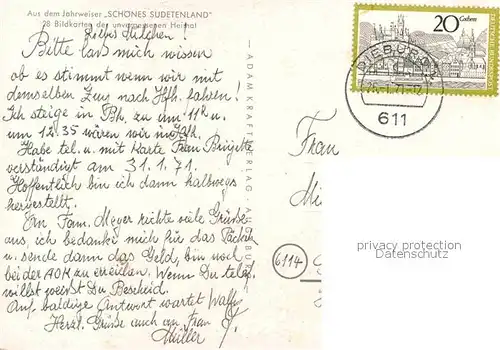 Aus dem Jahrweiser „SCHÖNES SUDETENLAND"
28 Bildkarten der unvergessenen Heimat
Liebes Milchen!
Bitte laß mich wissen
ob es stimmt wenn wir mit
demselben Zug nach Hfh. fahren.
Ich steige in Bh. zu um 11h u.
um 12.35 wären wir in Hfh.
Habe tel. u. mit Karte Frau Brigitte
verständigt am 31.1.71.
Hoffentlich bin ich dann halbwegs
hergestellt.
An Fam. Meyer richte viele Grüße
aus, ich bedanke mich für das
u. sende dann das Geld, bin noch
bei der AOK zu erreichen. Wenn Du telef.
willst weißt Du Bescheid.
Auf baldige Antwort wartet
Herzl. Grüße auch an Frau
Müller
ADAM KRAFT VERLAG
20 Cochem
DEUTSCHE BUNDESPOST
DIEBURG
611
Frau
6114
privacy protection
Datenschutz